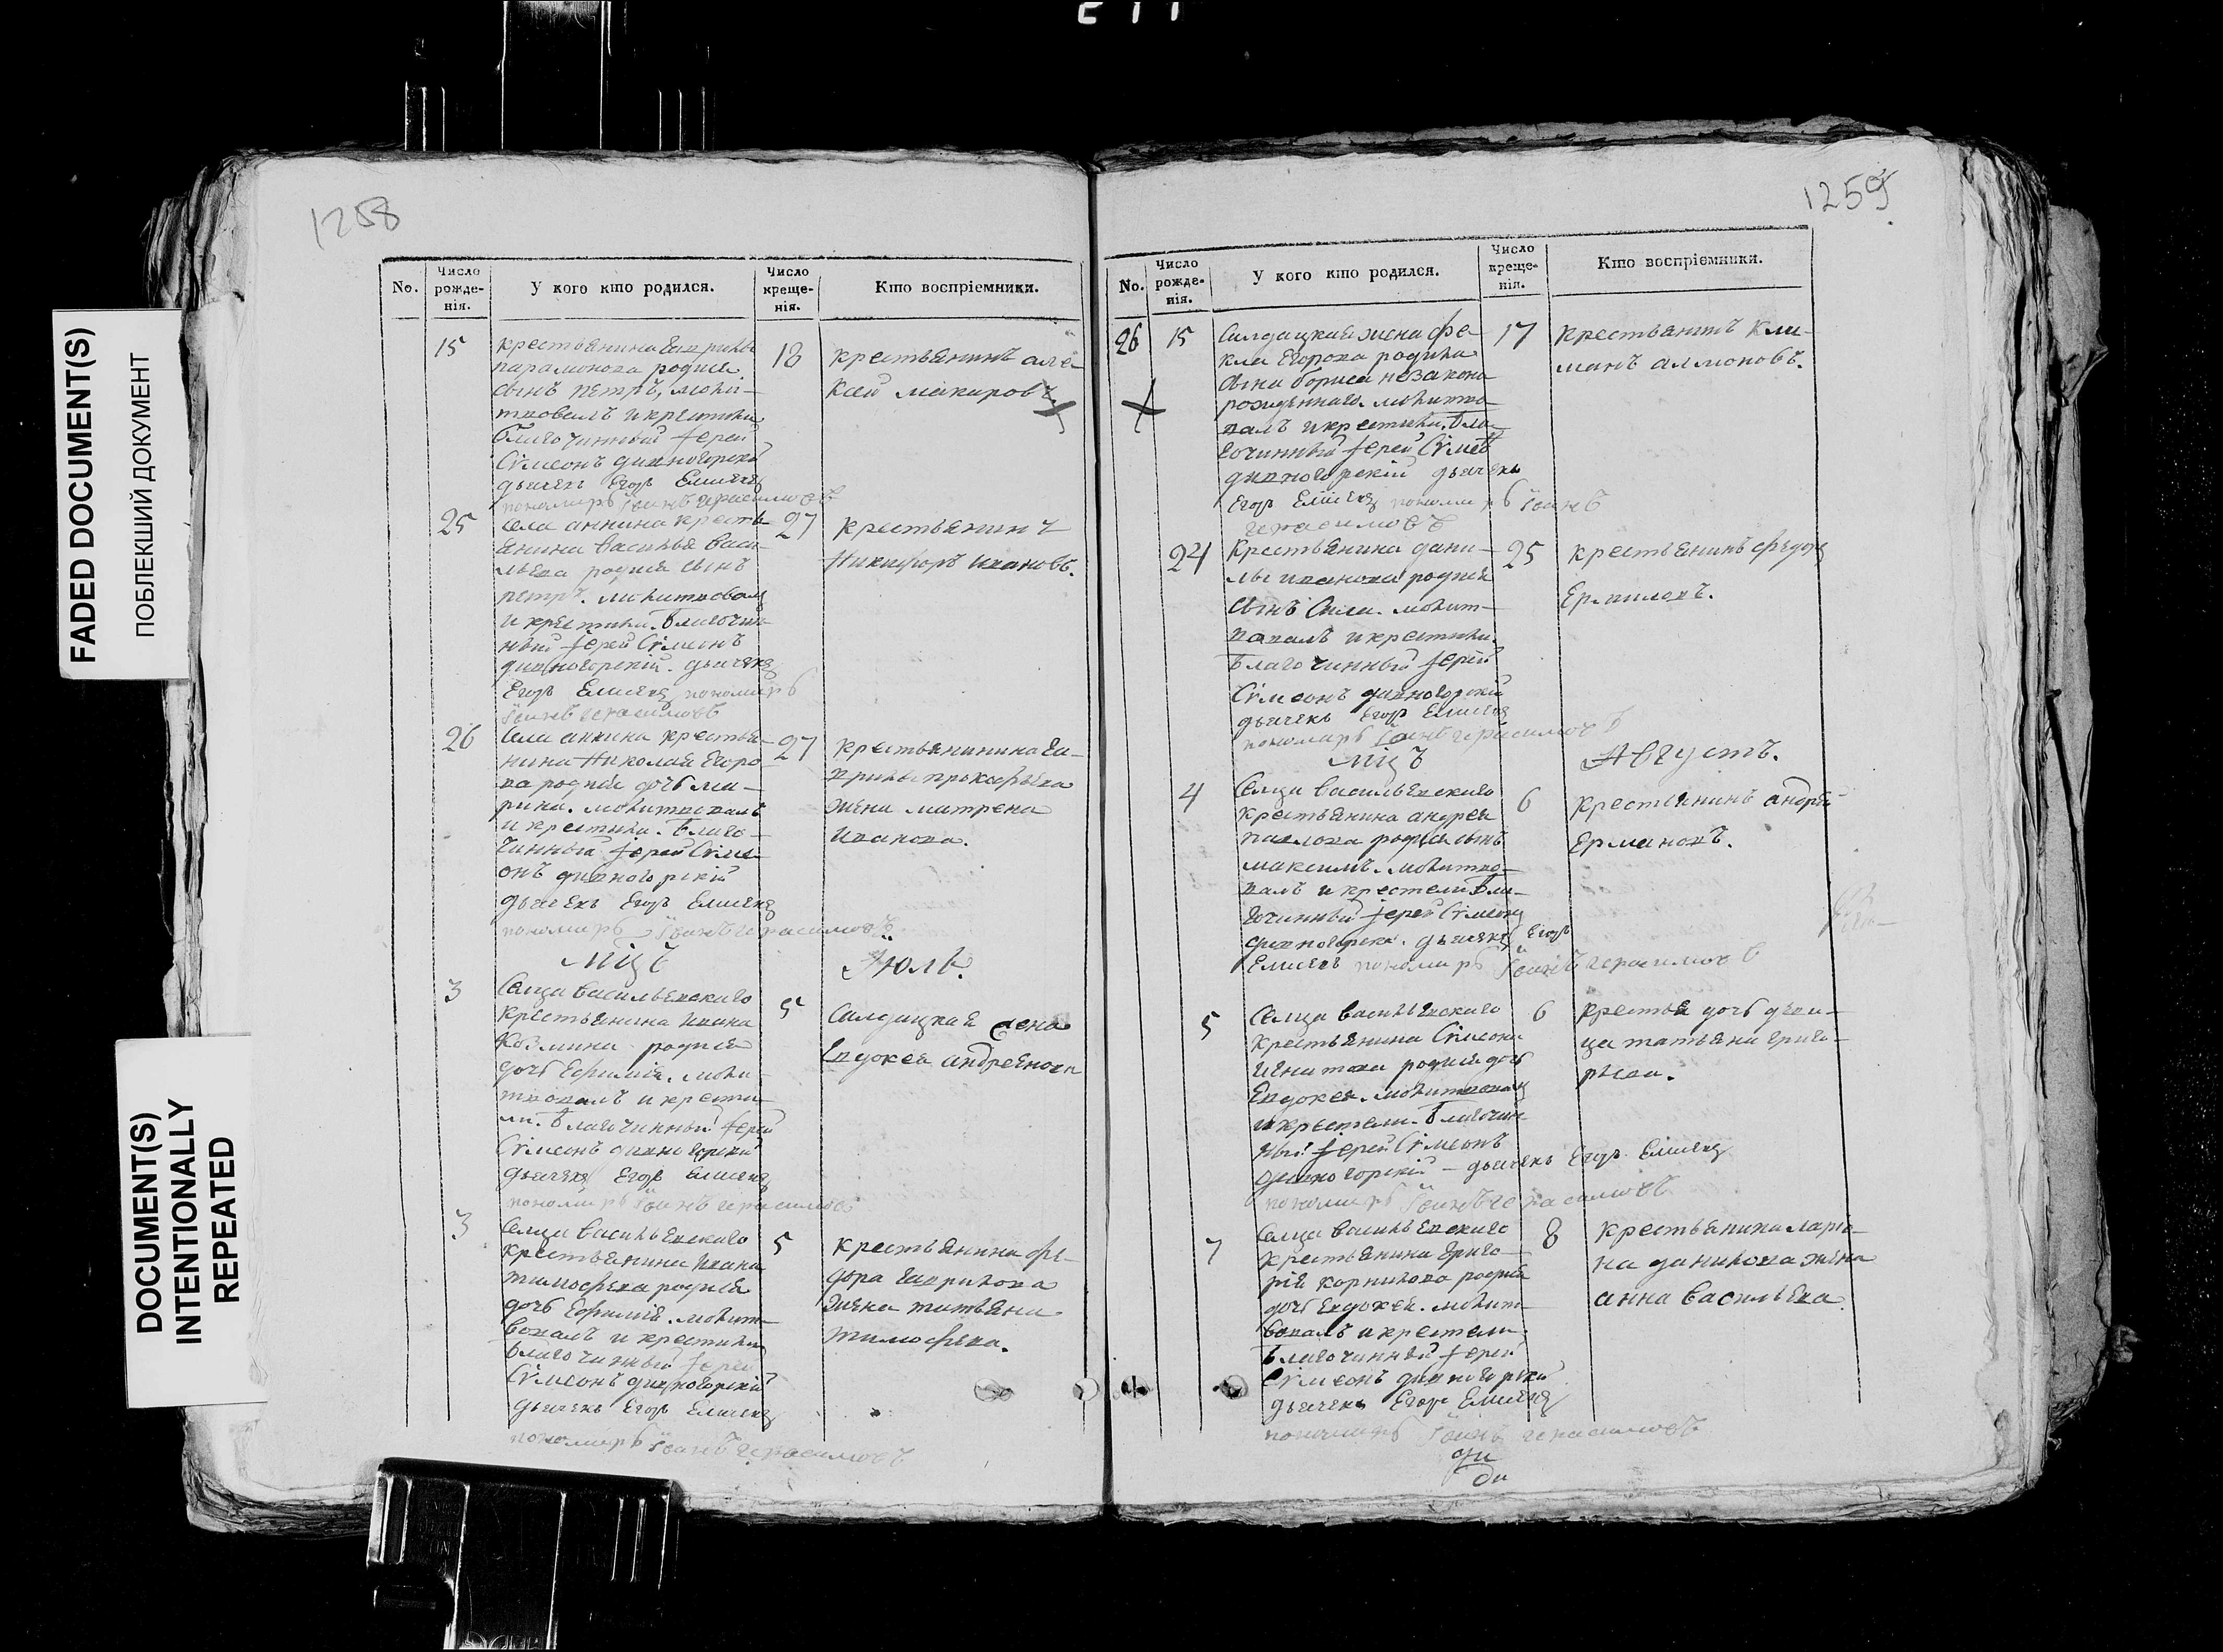 FADED DOCUMENT(S)
ПОБЛЕКШИЙ ДОКУМЕНТ
DOCUMENT(S)
INTENTIONALLY
REPEATED
1258
No.
Число рожде-нія.
У кого кто родился.
Число креще-нія.
Кто воспріемники.
15
крестьянина Гаврила
парамонова родися
сынъ петръ, моли-
твовалъ и крестили
благочинный іерей
Сѵмеонъ дивногорскій
дьячекъ Егоръ Елисеевъ
пономарь Іоаннъ Герасимовъ
18
крестьянинъ але-
ксей макаровъ
25
села аннина кресть-
янина василья васи-
льева родися сынъ
петръ. молитвовалъ
и крестили. благочин-
ный іерей Сѵмеонъ
дивногорскій. дьячекъ
Егоръ Елисеевъ пономарь
Іоаннъ Герасимовъ
27
крестьянинъ
Никифоръ ивановъ.
26
села аннина крестья-
нина Николая Егоро-
ва родися дочь ма-
рина. молитвовалъ
и крестили. благо-
чинный іерей Сѵме-
онъ дивногорскій
дьячекъ Егоръ Елисеевъ
пономарь Іоаннъ Герасимовъ
27
крестьянина Га-
врилы прокофьева
жена матрена
иванова.
мцъ
Июль.
3
Сельца васильевскаго
крестьянина ивана
Козмина родися
дочь Ефимія. моли-
твовалъ и крести-
ли. благочинный іерей
Сѵмеонъ дивногорскій
дьячекъ Егоръ Елисеевъ
пономарь Іоаннъ Герасимовъ
5
Салдацкая жена
Евдокея андреянова
3
Сельца васильевскаго
крестьянина ивана
тимофеева родися
дочь Ефимія. молит-
вовалъ и крестили
благочинный іерей
Сѵмеонъ дивногорскій
дьячекъ Егоръ Елисеевъ
пономарь Іоаннъ Герасимовъ
5
крестьянина фе-
дора гаврилова
жена татьяна
тимофеева.
1259
No.
Число рожде-нія.
У кого кто родился.
Число креще-нія.
Кто воспріемники.
26
15
Салдацкая жена фе-
кла Егорова родила
сына бориса незаконо
рожденнаго. молитво-
валъ и крестили. бла-
гочинный іерей Сѵмеонъ
дивногорскій дьячекъ
Егоръ Елисеевъ пономарь Іоаннъ
Герасимовъ
17
крестьянинъ Кли-
манъ
24
Крестьянина дани-
лы иванова родися
сынъ Сила. молит-
вовалъ и крестили.
благочинный іерей
Сѵмеонъ дивногорскій
дьячекъ Егоръ Елисеевъ
пономарь Іоаннъ Герасимовъ
25
крестьянинъ федоръ
Ермиловъ.
мцъ
Августъ.
4
Сельца васильевскаго
крестьянина андрея
павлова родися сынъ
максимъ. молитво-
валъ и крестели бла-
гочинный іерей Сѵмеонъ
дивногорски. дьячекъ Егоръ
Елисеевъ пономарь Іоаннъ Герасимовъ
6
крестьянинъ андрей
Ермановъ.
5
Сельца васильевскаго
крестьянина Сѵмеона
игнатова родися дочь
Евдокея. молитвовалъ
и крестели. благочин-
ный іерей Сѵмеонъ
дивногорскій - дьячекъ Егоръ Елисеевъ
пономарь Іоаннъ Герасимовъ
6
крестья дочь деви-
ца татьяна григо-
рьева.
7
Сельца васильевскаго
крестьянина григо-
рія корнилова родися
дочь Евдокея. молит-
вовалъ и крестели
благочинный іерей
Сѵмеонъ дивногорскій
дьячекъ Егоръ Елисеевъ
пономарь Іоаннъ Герасимовъ
8
крестьянина ларіо-
на данилова жена
анна васильева.